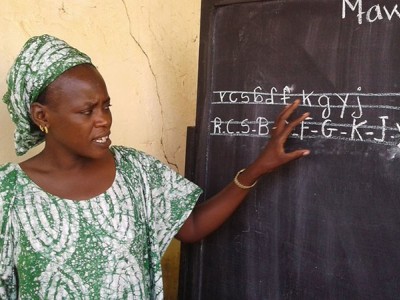 Maw
r c s ɓ d f t K g y j
R-C-S-B- -F-G-K-J-Y